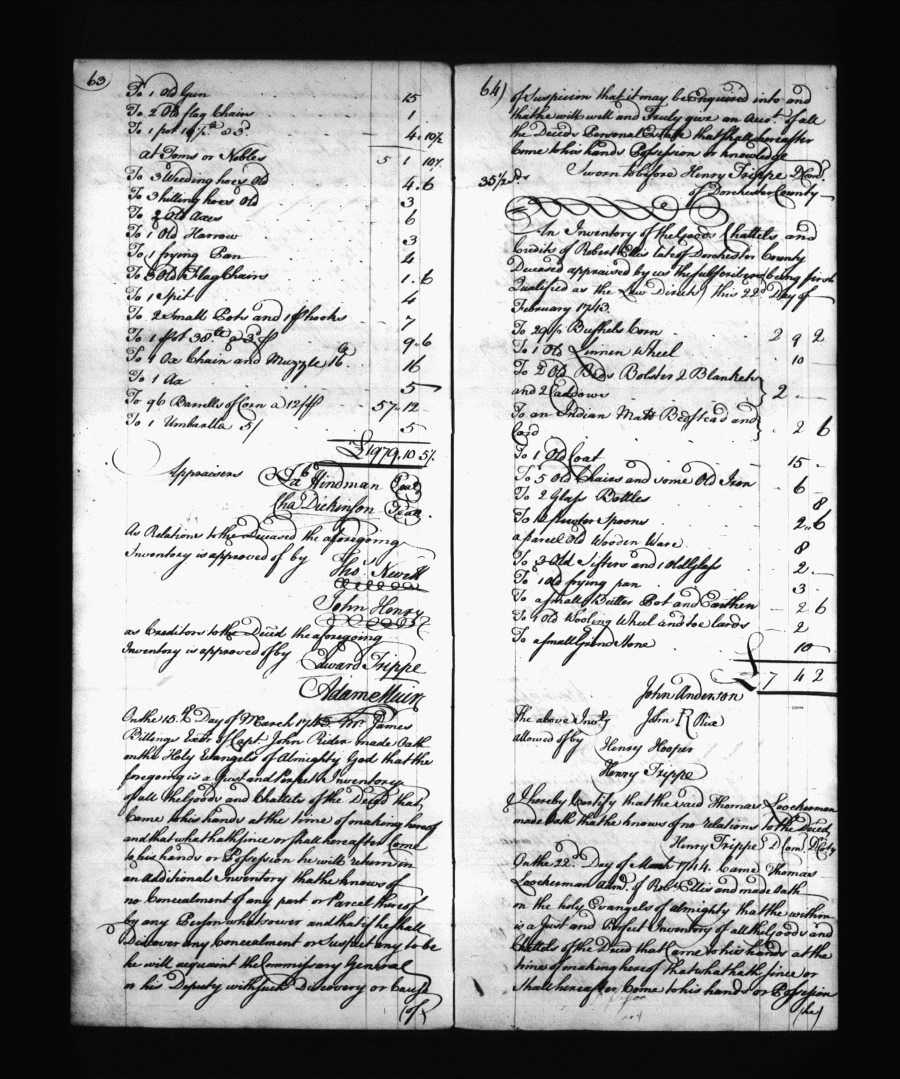 63
To 1 Old Gun 15
To 2 Old flag Chairs 1
To 1 pot 14½ lb a 3d. 4.10½
at Toms or Nobles 5 1 10½
To 3 Weeding hoes Old 4.6
To 3 hilling hoes Old 3
To 2 Old Axes 6
To 1 Old Harrow 3
To 1 frying Pan 4
To 3 Old Flag Chairs 1.6
To 1 Spit 4
To 2 Small Pots and 1 pr hooks 7
To 1 Pot 38 lb a 3d 9.6
To 1 Ox Chain and Muzzle 16 16
To 1 Ax 5
To 96 Barrells of Corn a 12/ 57.12
To 1 Umbrella 5/ 5
£1979.10.5½
Appraisers Hindman Seal
Cha Dickinson Seal
As Relations to the Deceased the aforegoing
Inventory is approved of by
Thos Newell
John Henry
as Creditors to the Decd the aforegoing
Inventory is approved of by
Edward Trippe
Adam Muir
On the 15th Day of March Mr James
Billings Exr of Capt John Rider made Oath
on the Holy Evangels of Almighty God that the
foregoing is a Just and Perfect Inventory
of all the Goods and Chattels of the Decd that
Came to his hands at the time of making hereof
and that what hath since or shall hereafter Come
to his hands or Possession he will return in
an Additional Inventory that he knows of
no Concealment of any part or Parcel thereof
by any Person whatsoever and that if he shall
Discover any Concealment or suspect any to be
he will acquaint the Commissary General
or his Deputy with such Discovery or Cause
(of)
64)
of Suspicion that it may be Enquired into and
that he will well and Truly give an Accot. of all
the Deceds Personal Estate that shall hereafter
Come to his hands Possession or knowledge
Sworn to before Henry Trippe
of Dorchester County
35½
An Inventory of the Goods Chattels and
Credits of Robert Ellis late of Dorchester County
Deceased appraised by us the subscribers being first
Qualified as the Law Directs this 22d Day of
February 1743
To 29½ Bushels Corn 2 9 2
To 1 Old Linnen Wheel 10
To 2 Old Beds Bolster 2 Blankets
and 2 Caddows 2
To an Indian Matt Bedstead and
Cord 2 6
To 1 Old Coat 15
To 5 Old Chairs and some Old Iron 6
To 2 Glass Bottles 8
To Pewter Spoons 2.6
a parcel Old Wooden Ware 8
To 3 Old Sifters and 1 Old Glass 2
To 1 Old frying pan 3
To a small Butter Pot and Earthen 2 6
To 1 Old Wooling Wheel and toe Cards 2
To a small Grind Stone 10
£7 4 2
John Anderson
The above Invty John R Rix
allowed of by
Henry Hooper
Henry Trippe
I hereby Certify that the said Thomas Loockerman
made Oath that he knows of no relations to the Deced
Henry Trippe D Com. D Cty
On the 22d. Day of March 1744. Came Thomas
Loockerman Admr. of Robt Ellis and made Oath
on the holy Evangels of almighty that the within
is a Just and Perfect Inventory of all the Goods and
Chattels of the Decd that Came to his hands at the
time of making hereof that what hath since or
Shall hereafter Come to his hands or Possession
(he)